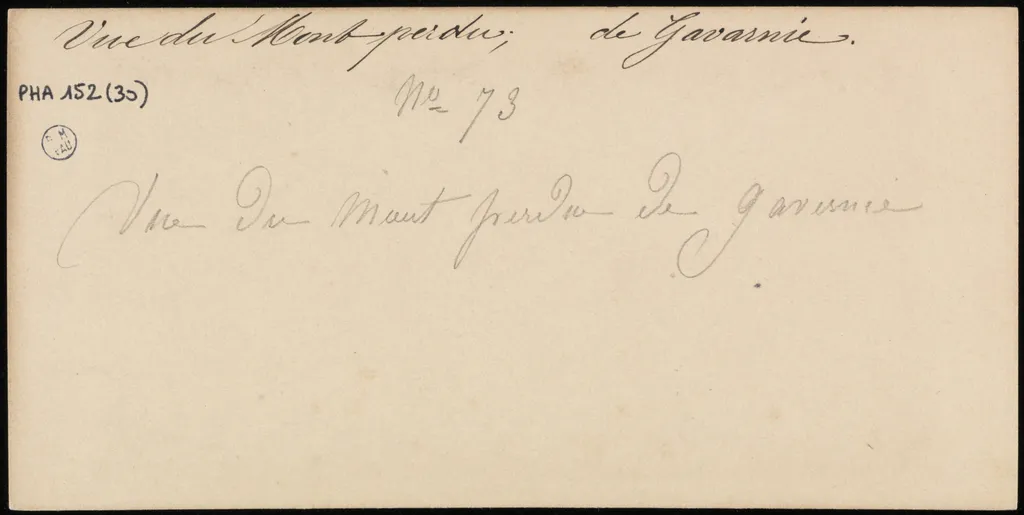 Vue du Mont perdu, de Gavarnie.
PHA 152 (30)
Nº 73
B M
PAU
Vue du Mont perdu de gavernie